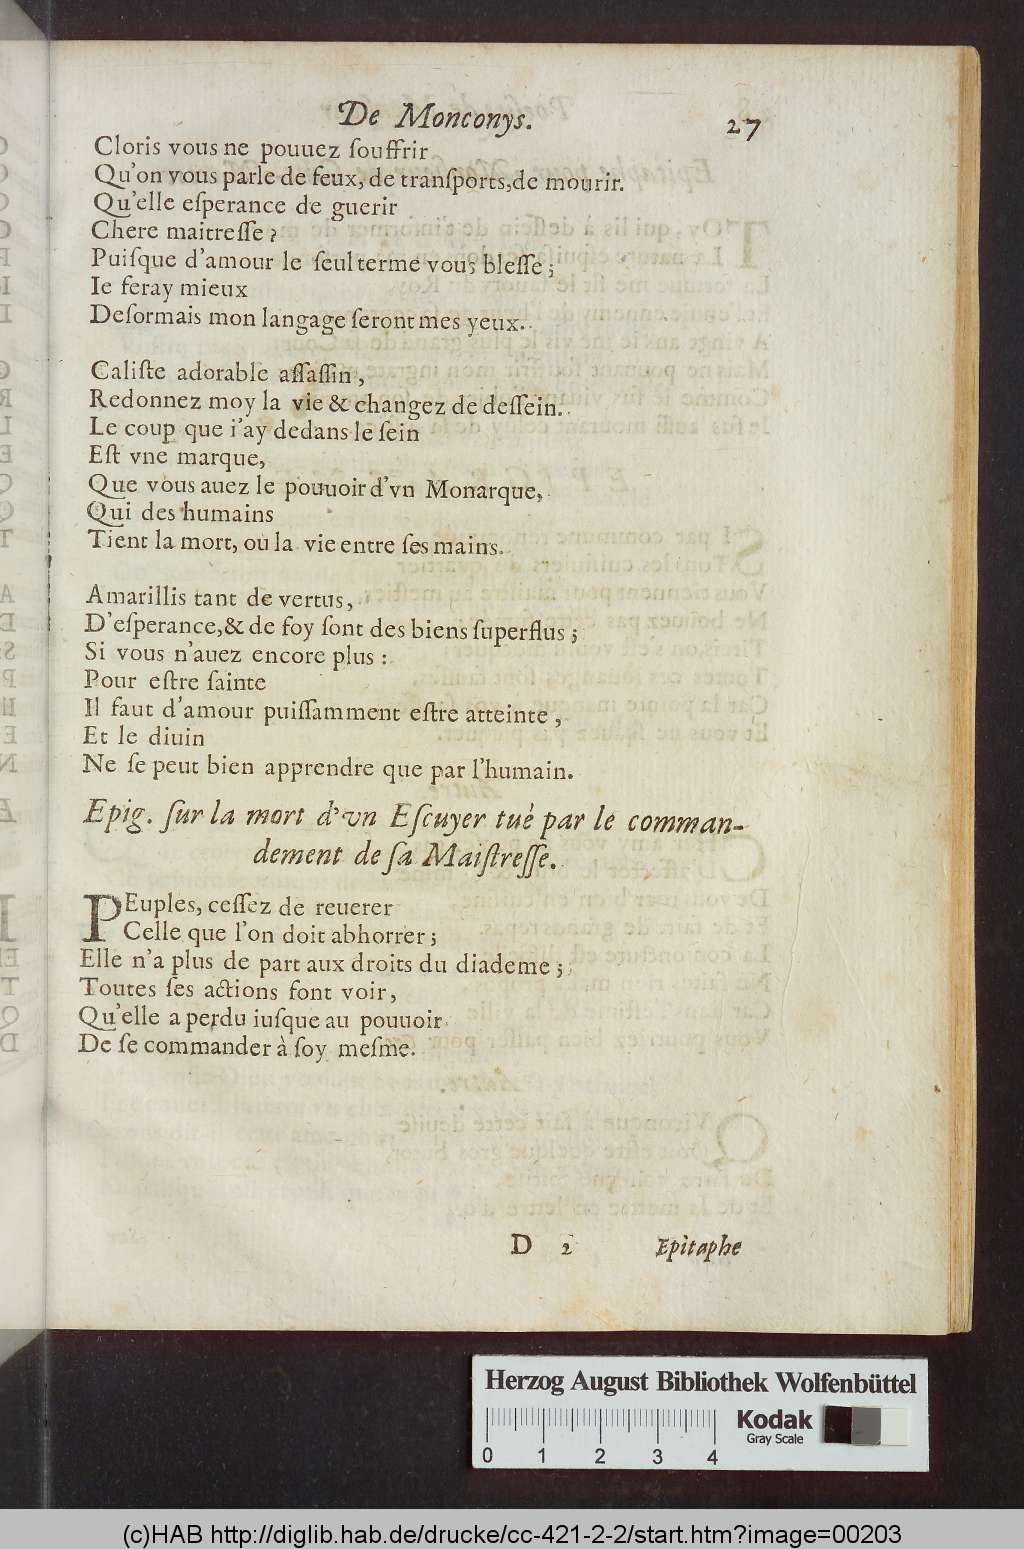 De Monconys. 27
Cloris vous ne pouuez ſouffrir
Qu'on vous parle de feux, de tranſports, de mourir.
Qu'elle eſperance de guerir
Chere maitreſſe?
Puiſque d'amour le ſeul terme vous bleſſe;
Ie feray mieux
Deſormais mon langage ſeront mes yeux.
Caliſte adorable aſſaſſin,
Redonnez moy la vie & changez de deſſein.
Le coup que i'ay dedans le ſein
Eſt vne marque,
Que vous auez le pouuoir d'vn Monarque,
Qui des humains
Tient la mort, ou la vie entre ſes mains.
Amarillis tant de vertus,
D'eſperance, & de foy ſont des biens ſuperflus;
Si vous n'auez encore plus:
Pour eſtre ſainte
Il faut d'amour puiſſamment eſtre atteinte,
Et le diuin
Ne ſe peut bien apprendre que par l'humain.
Epig. ſur la mort d'vn Eſcuyer tué par le comman-
dement de ſa Maiſtreſſe.
PEuples, ceſſez de reuerer
Celle que l'on doit abhorrer;
Elle n'a plus de part aux droits du diademe;
Toutes ſes actions font voir,
Qu'elle a perdu iuſque au pouuoir
De ſe commander à ſoy meſme.
D 2 Epitaphe
Herzog August Bibliothek Wolfenbüttel
Kodak
Gray Scale
0 1 2 3 4
(c)HAB http://diglib.hab.de/drucke/cc-421-2-2/start.htm?image=00203